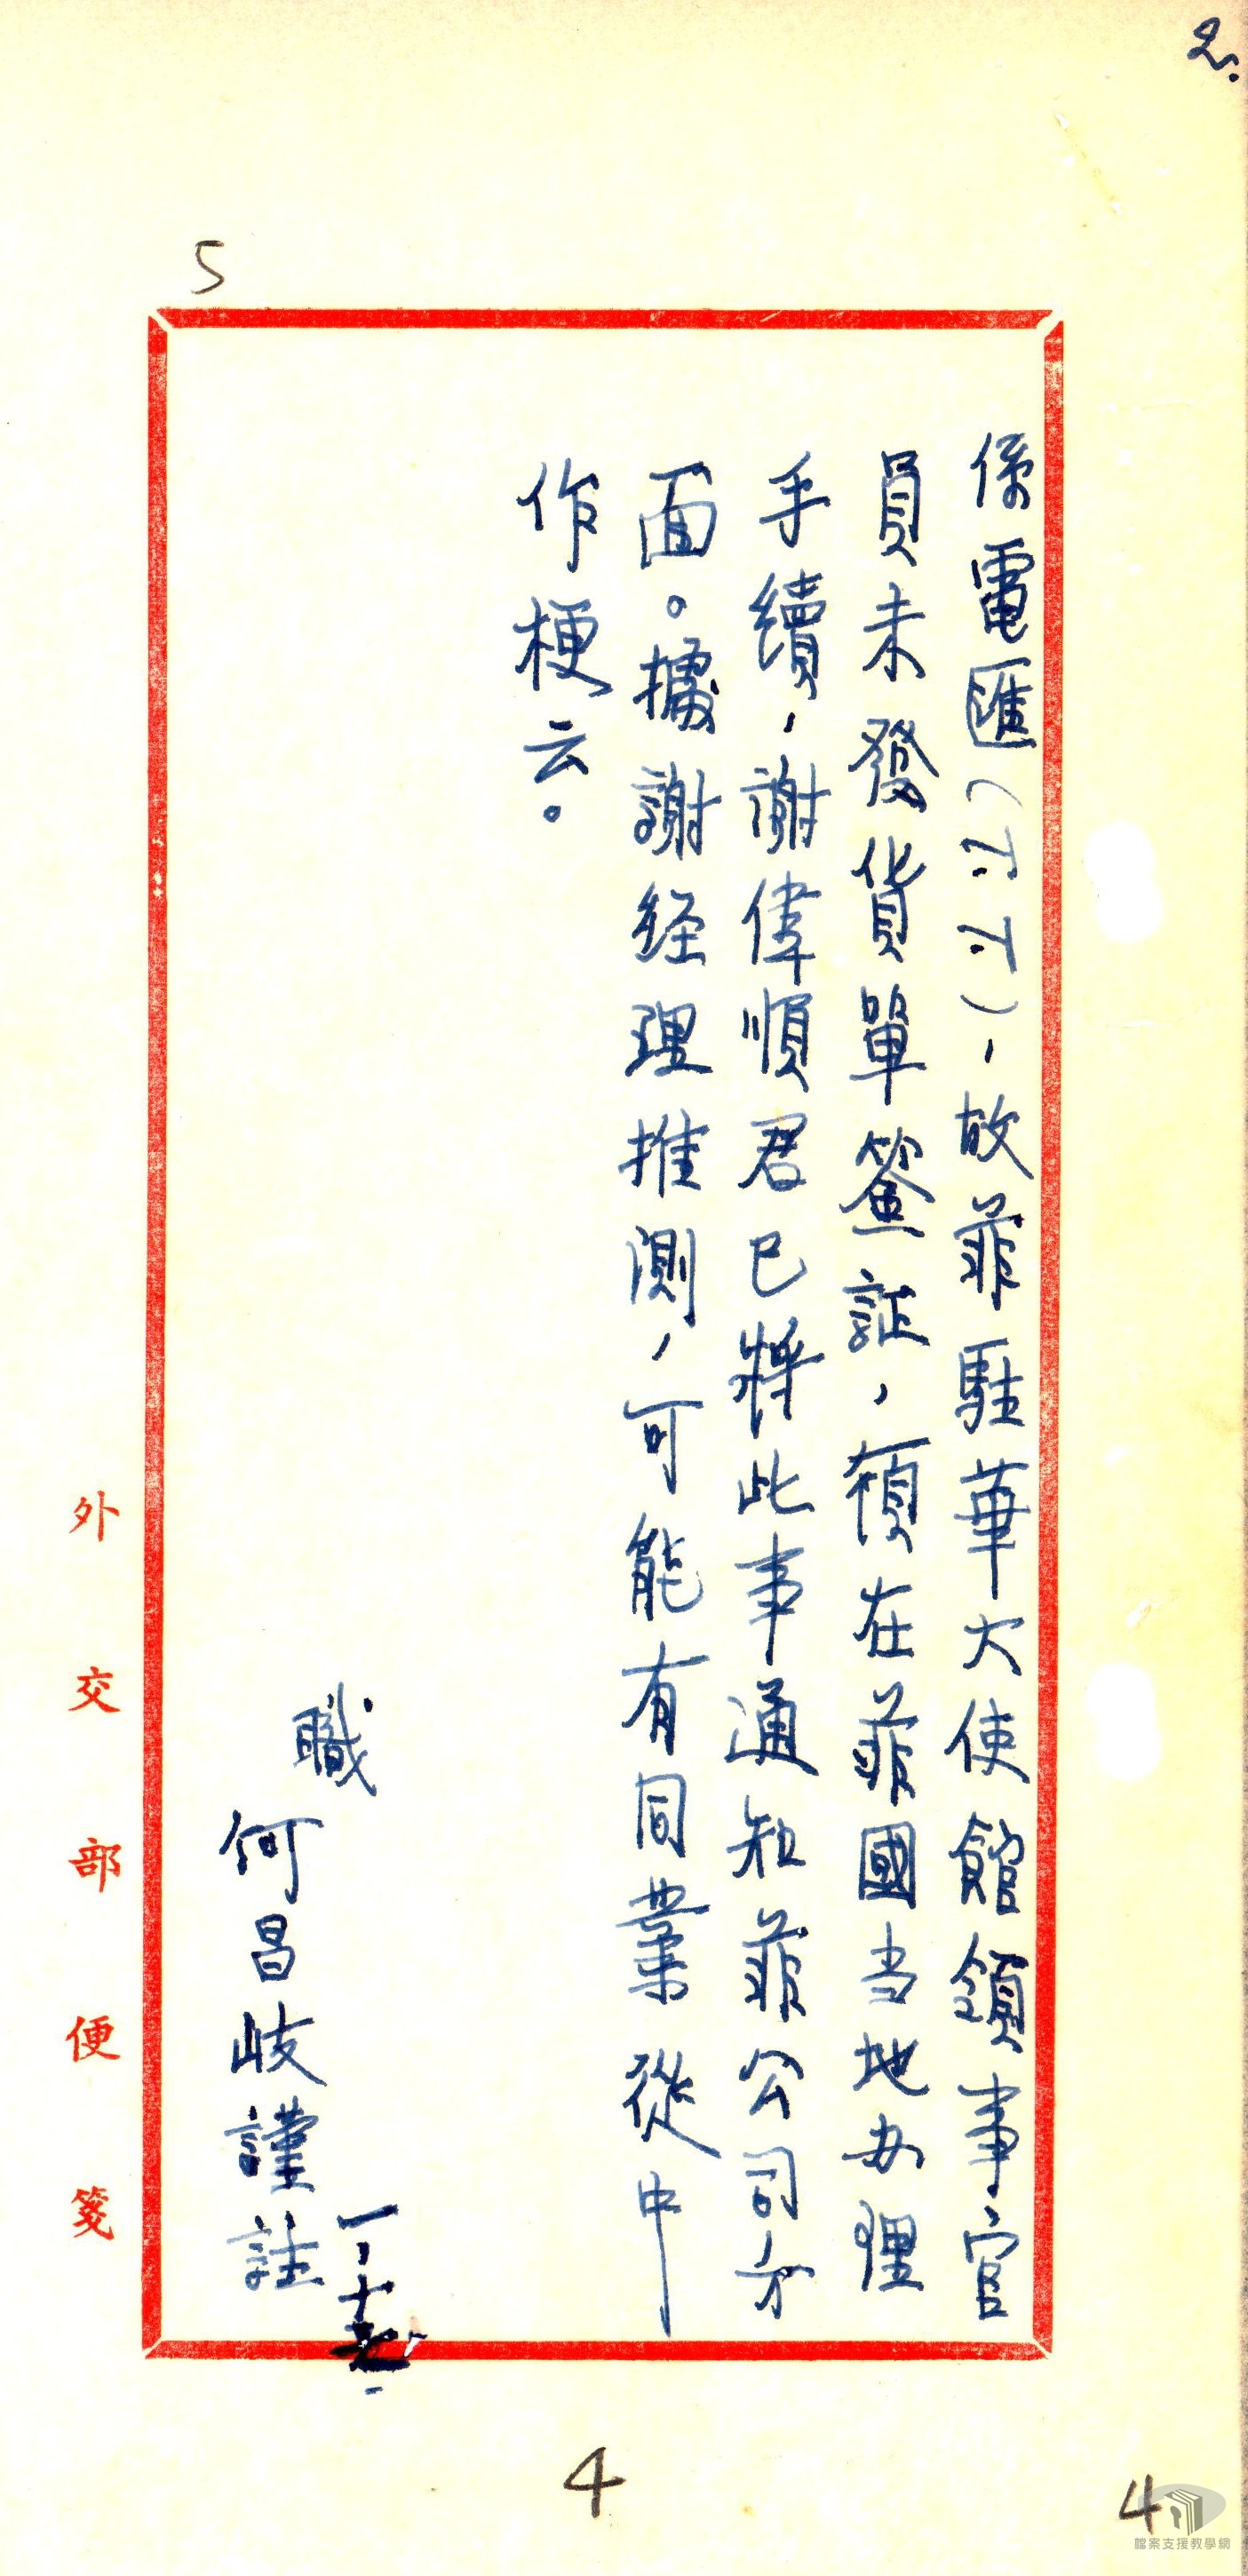 2.
5
係電匯(T.T.),故菲駐華大使館領事官
員未發貨單簽証,須在菲國当地办理
手續,謝偉順君已將此事通知菲公司方
面。據謝经理推測,可能有同業從中
作梗云。
職
何昌岐謹註
一、十
外交部便箋
4
4
檔案支援教學網